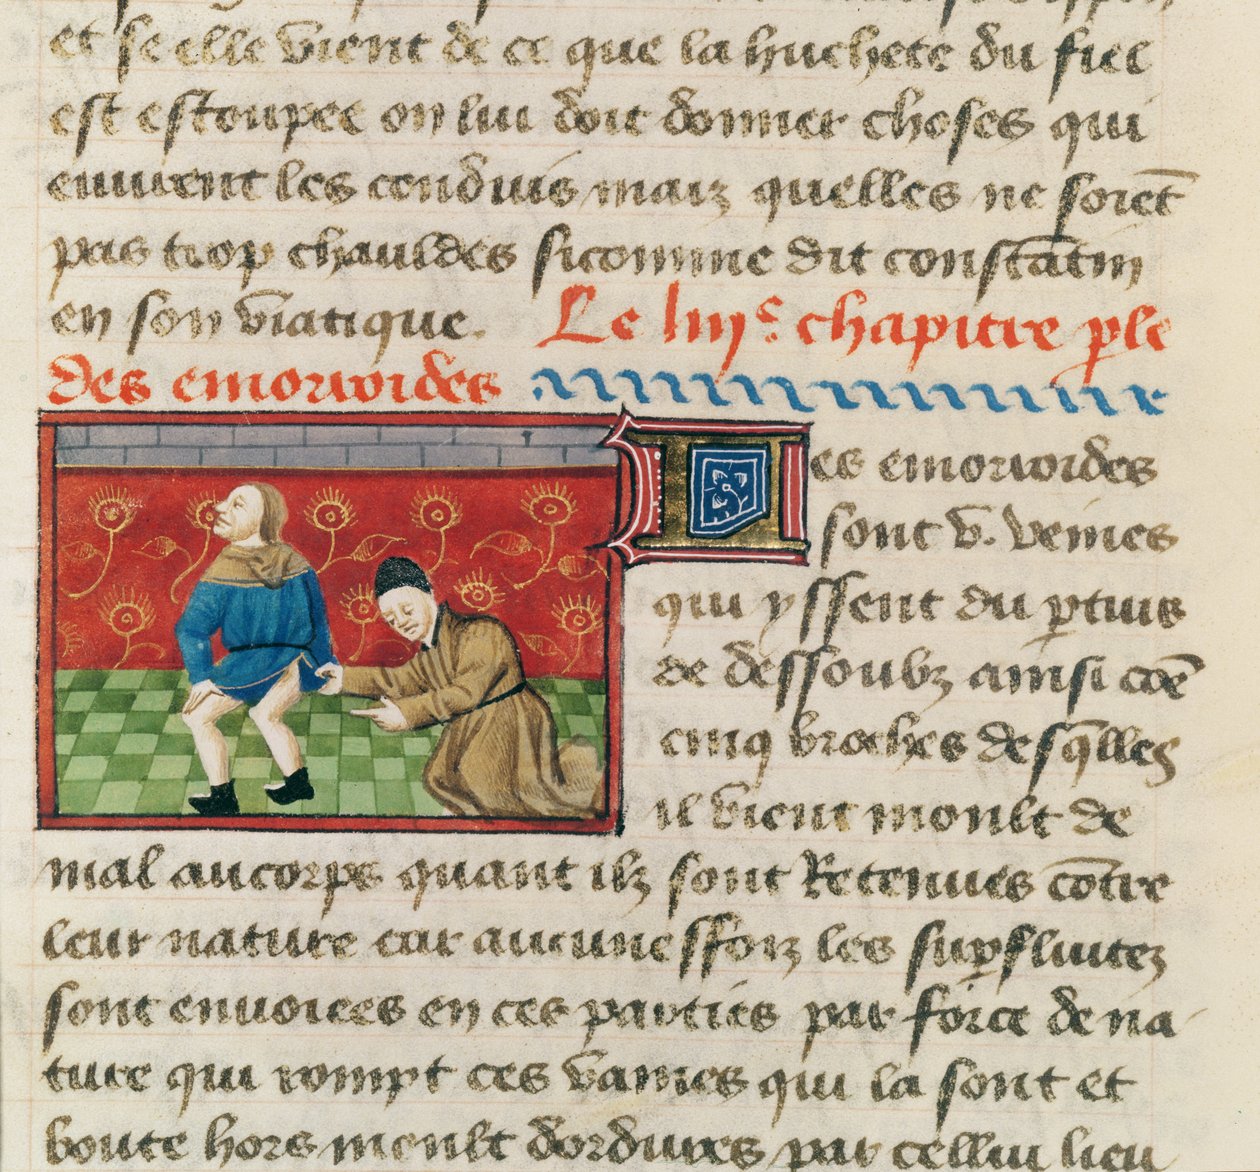 et se elle vient de ce que la huchete du fiel
est estoupee on lui doit donner choses qui
euurent les conduis maiz quelles ne soiēt
pas trop chauldes sicomme dit constātin
en son viatique. Le liiijᵉ chapitre ꝑle
des emoroides
Les emoroides
sont v. veines
qui yssent du ꝑtuis
de dessoubz ainsi cōe
cinq broches desq̄lles
il vient moult de
mal au corps quant ilz sont Retenues cōtre
leur nature car aucuneffoiz les suꝑfluitez
sont enuoiees en ces parties par force de na
ture qui rompt ces vaines qui la sont et
boute hors moult dordures par cellui lieu